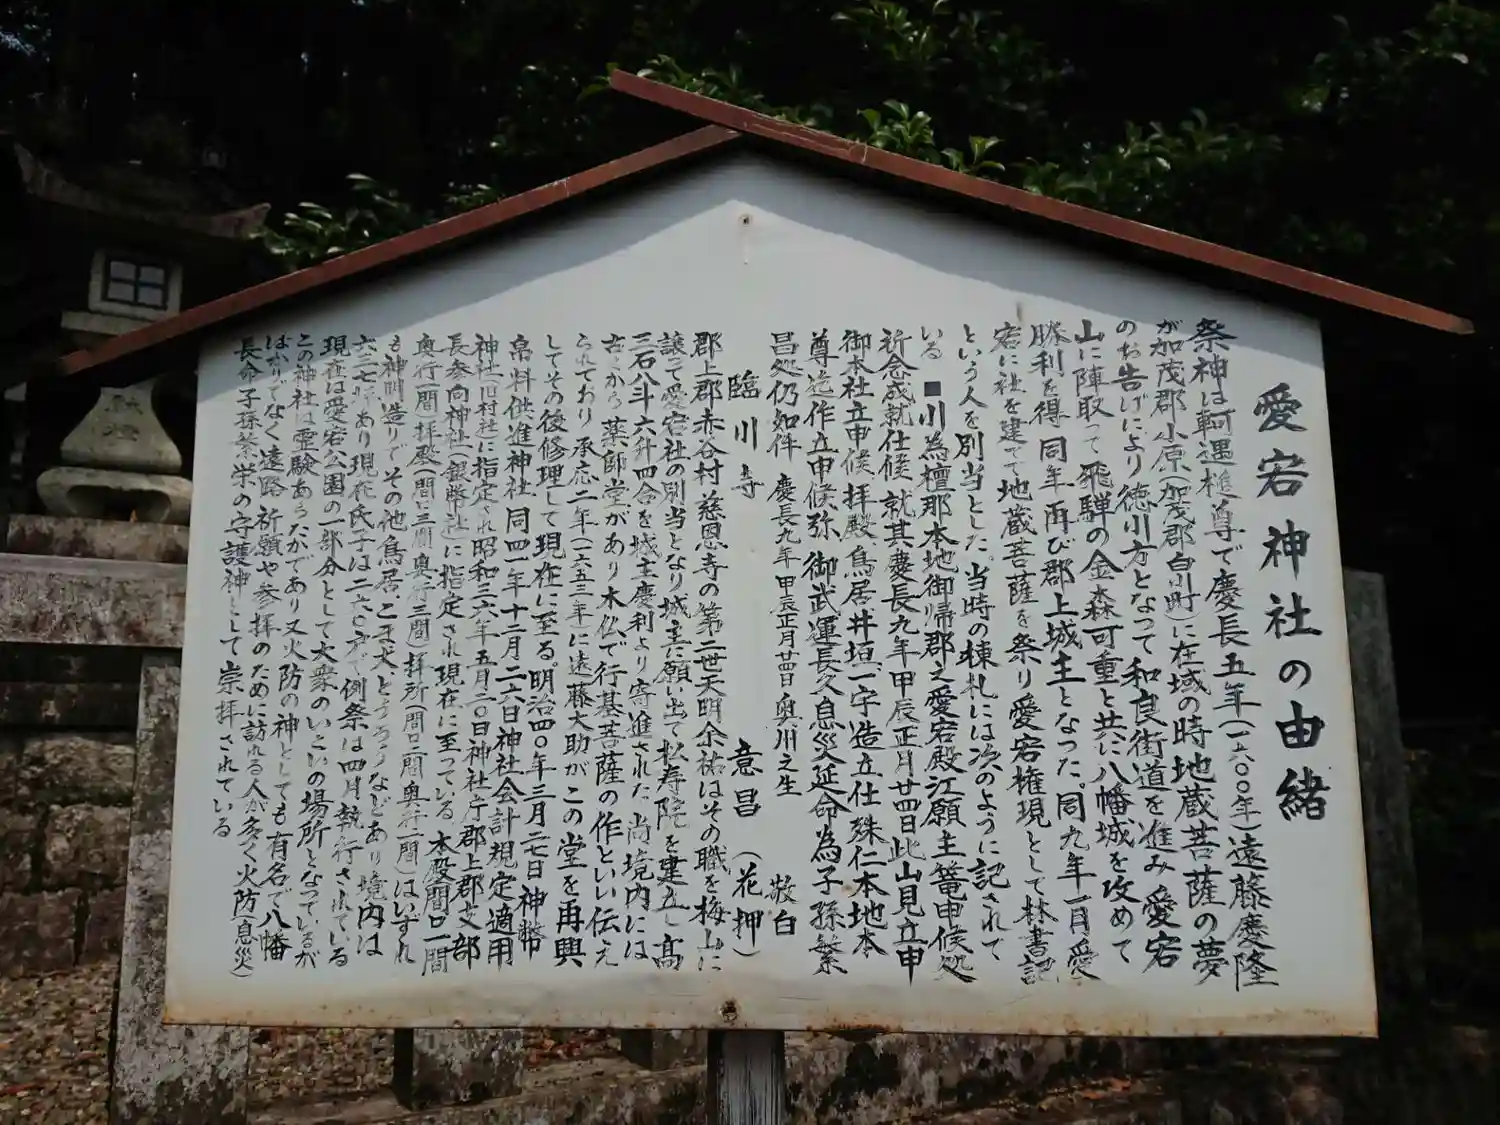 愛宕神社の由緒
祭神は軻遇槌尊で慶長五年(一六〇〇年)遠藤慶隆
が加茂郡小原(加茂郡白川町)に在域の時地蔵菩薩の夢
のお告げにより徳川方となって和良街道を進み愛宕
山に陣取って飛騨の金森可重と共に八幡城を攻めて
勝利を得同年再び郡上城主となった。同九年一月愛
宕に社を建てて地蔵菩薩を祭り愛宕権現として林書記
という人を別当とした。当時の棟札には次のように記されて
いる ■川為檀那本地御帰郡之愛宕殿江願主篭申候処
祈念成就仕候 就其慶長九年甲辰正月廿四日此山見立申
御本社立申候拝殿鳥居井垣一宇造立仕殊仁本地本
尊造作立申候弥 御武運長久息災延命為子孫繁
昌処仍如件 慶長九年甲辰正月廿四日奥川之生
臨川寺 意昌(花押) 敬白
郡上郡赤谷村慈恩寺の第二世天明余祐はその職を梅山に
譲って愛宕社の別当となり城主に願い出て松寿院を建立し高
三石八斗六升四合を城主慶利より寄進された 尚境内には
古くから薬師堂があり木仏で行基菩薩の作といい伝え
られており承応二年(一六五三年)に遠藤大助がこの堂を再興
してその後修理して現在に至る。明治四〇年三月二七日神幣
帛料供進神社、同四一年十二月二六日神社会計規定適用
神社(旧村社)に指定され昭和三六年五月二〇日神社庁郡上郡支部
長参向神社(銀幣社)に指定され現在に至っている 本殿間口一間
奥行一間拝殿(間口三間奥行三間)拝所(間口二間奥行一間)はいずれ
も神明造りでその他鳥居、こま犬、とうろうなどあり境内は
六三七坪あり現在氏子は二六〇戸で例祭は四月執行されている
現在は愛宕公園の一部分として大衆のいこいの場所となっているが
この神社は霊験あらたかであり又火防の神としても有名で八幡
ばかりでなく遠路祈願や参拝のために訪れる人が多く火防(息災)
長命子孫繁栄の守護神として崇拝されている